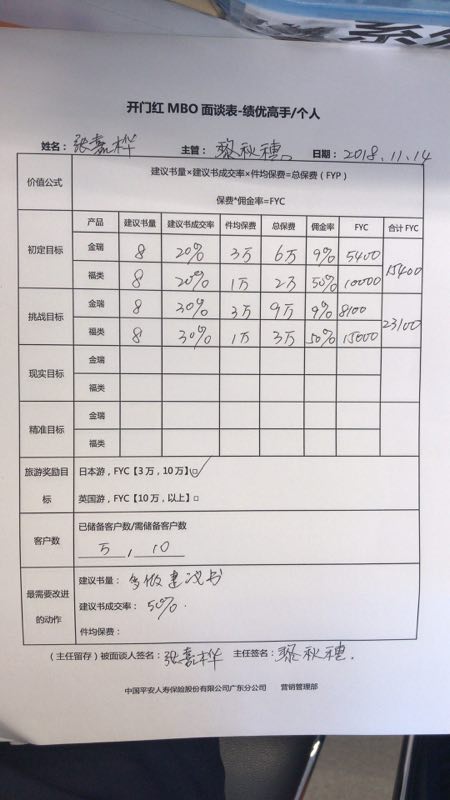 系统
开门红 MBO 面谈表-绩优高手/个人
姓名：张嘉桦 主管：黎秋穗。 日期：2018.11.14
价值公式 建议书量×建议书成交率×件均保费=总保费（FYP）
保费*佣金率=FYC
产品 建议书量 建议书成交率 件均保费 总保费 佣金率 FYC 合计 FYC
初定目标 金瑞 8 20% 3万 6万 9% 5400 15400
福类 8 20% 1万 2万 50% 10000
挑战目标 金瑞 8 30% 3万 9万 9% 8100 23100
福类 8 30% 1万 3万 50% 15000
现实目标 金瑞
福类
精准目标 金瑞
福类
旅游奖励目标 日本游，FYC【3万，10万】☑
英国游，FYC【10万，以上】□
客户数 已储备客户数/需储备客户数
5 , 10
最需要改进的动作 建议书量：多做建议书
建议书成交率：50%.
件均保费：
（主任留存）被面谈人签名：张嘉桦 主任签名：黎秋穗.
中国平安人寿保险股份有限公司广东分公司 营销管理部